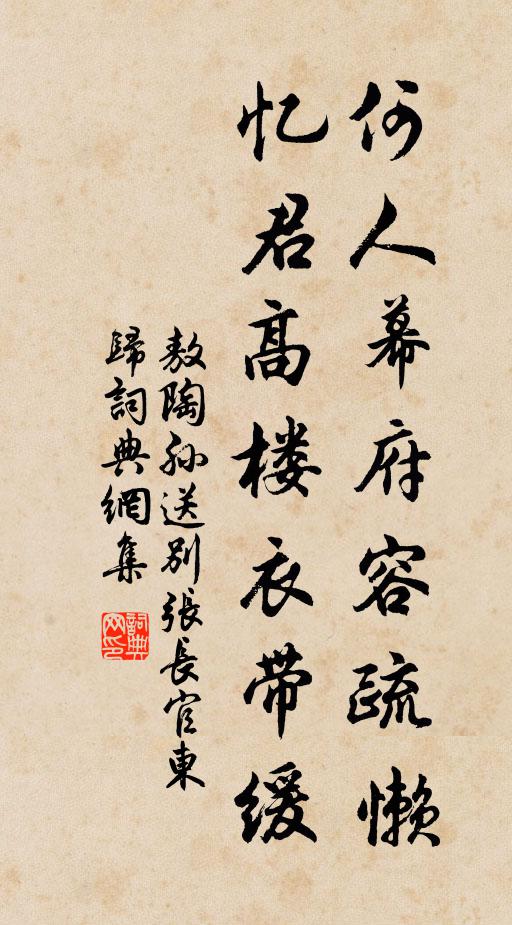 何人幕府容疏懒
忆君高楼衣带缓
敖陶孙送别張長官東
歸詞典網集
詞典网印